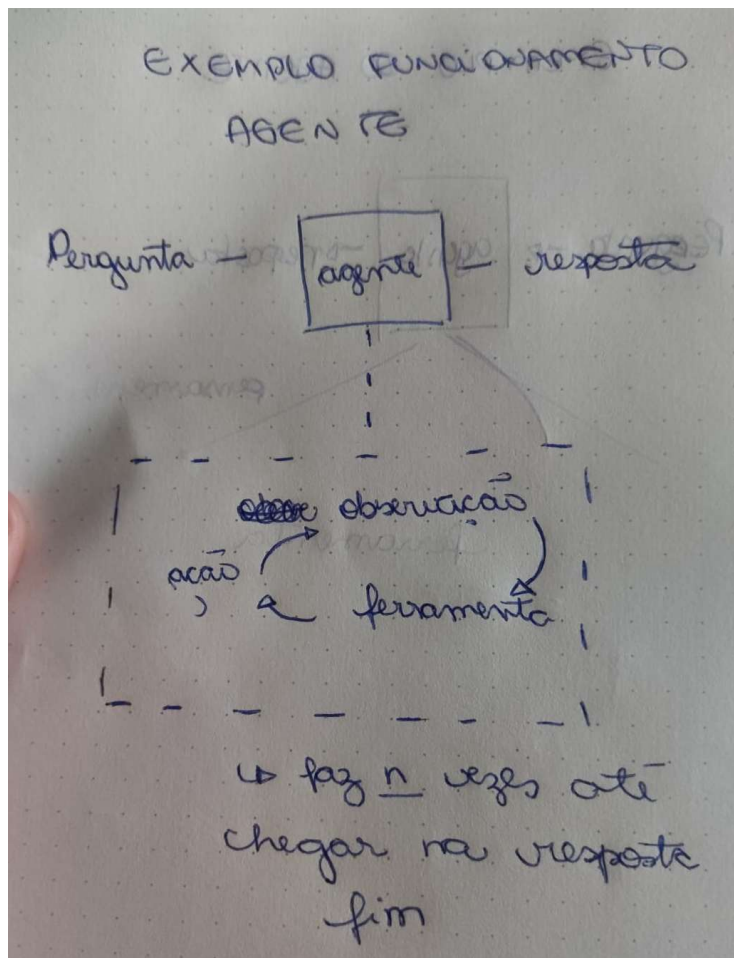 EXEMPLO FUNCIONAMENTO
AGENTE
Pergunta - agente - resposta
observação
ação
ferramenta
↳ faz n vezes até
chegar na resposta
fim